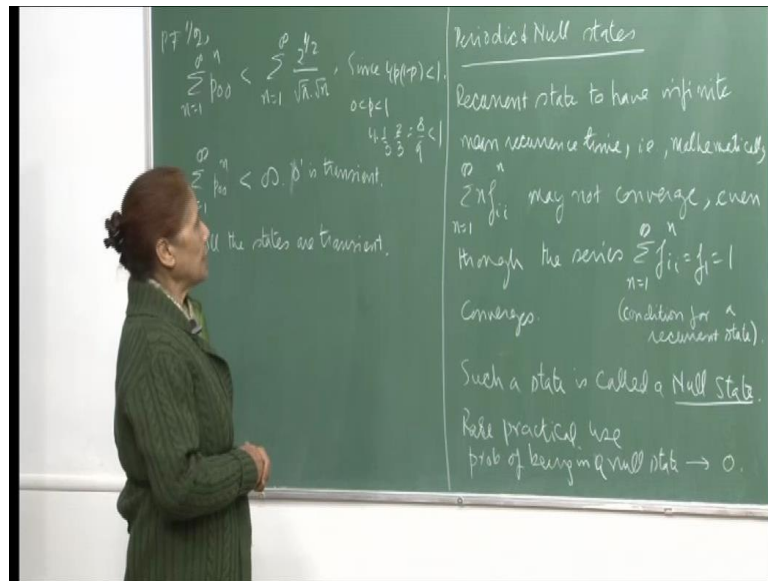 p≠1/2,
∞ n ∞ 2^{1/2}
∑ p₀₀ < ∑ ———, Since 4p(1-p) < 1.
n=1 n=1 √π.√n
0<p<1
4.1/3.2/3 = 8/9 < 1
∑ p₀₀ⁿ < ∞. '0' is transient.
all the states are transient.
Periodic & Null states
Recurrent state to have infinite
mean recurrence time, ie, mathematically,
∞
∑ n f_{ii}^n may not converge, even
n=1
through the series ∑_{n=1}^∞ f_{ii}^n = f_i = 1
Converges. (Condition for a
recurrent state).
Such a state is called a Null State.
Rare practical use
prob of being in a null state → 0.